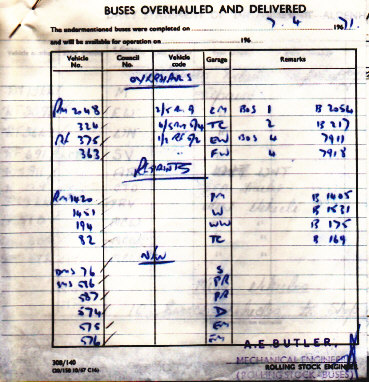 BUSES OVERHAULED AND DELIVERED
The undermentioned buses were completed on 7. 4. 1971
and will be available for operation on 196
Vehicle No. Council No. Vehicle code Garage Remarks
OVERHAULS
RM 2048 CM BOS 1 B 2054
324 TC 2 B 217
RF 375 EW BOS 4 7911
363 FW 4 7918
REPAINTS
RM 1420 PM B 1405
1451 W B 1531
194 WW B 175
82 TC B 169
NEW
DMS 76 S
SMS 586 PR
587 PR
574 D
575 EM
576 EM
A. E. BUTLER,
MECHANICAL ENGINEER
(ROLLING STOCK-BUSES)
ROLLING STOCK ENGINEER
308/140